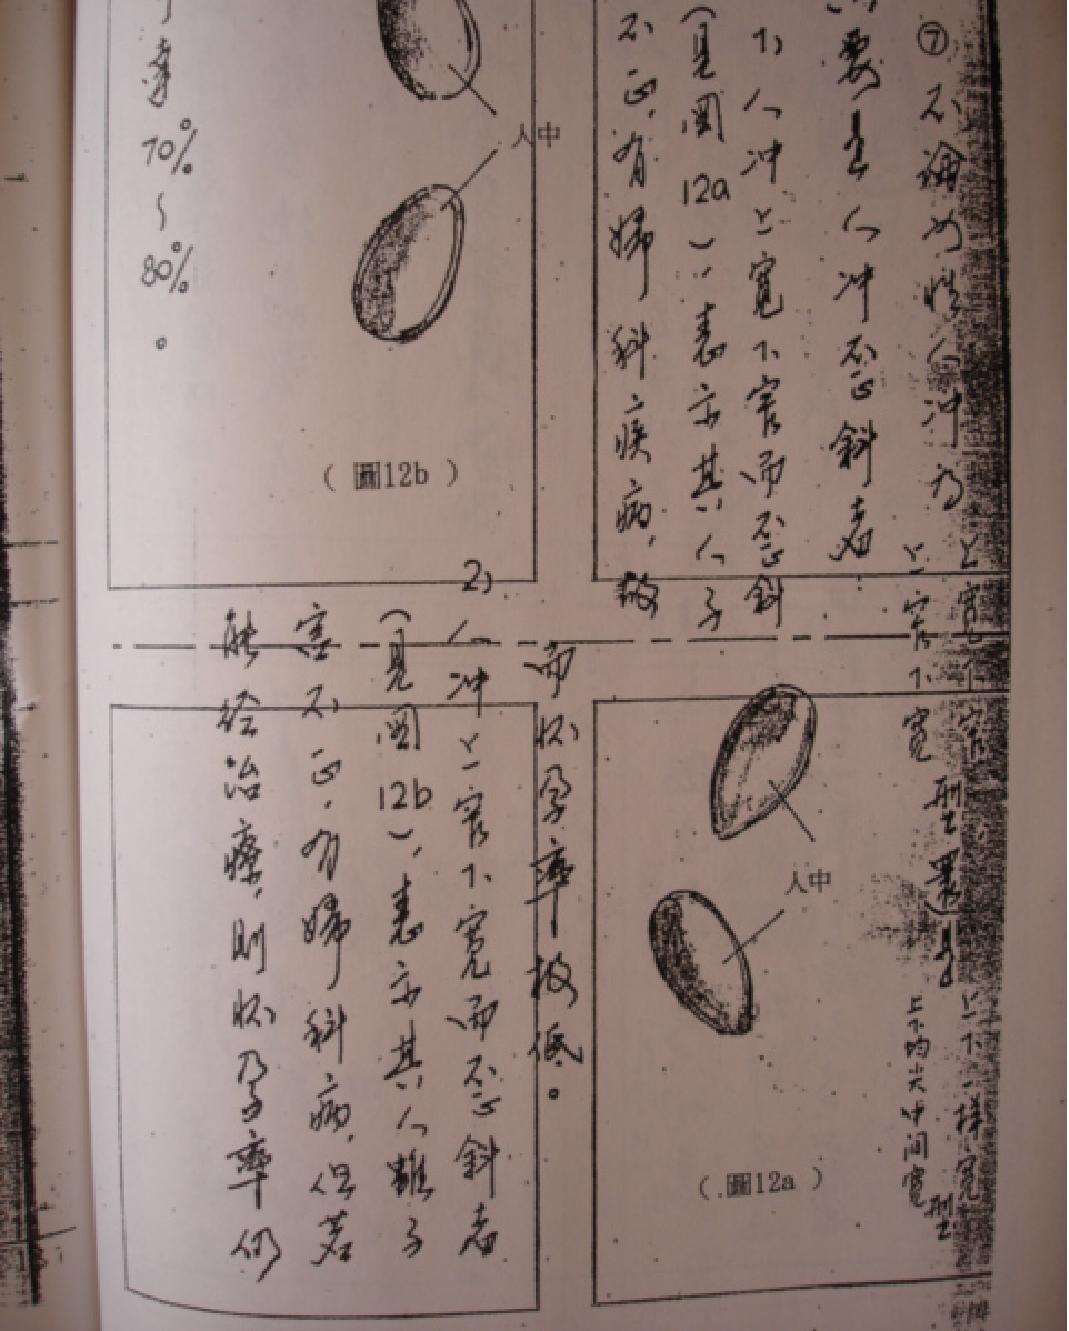 ⑦不論女性人沖為
上寬下窄
上窄下寬
型罢
上下一樣寬
上下均尖中间寬
型
要是人沖歪斜者
1、人沖上寬下窄而歪斜
(見圖12a)、表示其人子
不正,有婦科疾病,故
而怀孕率較低。
人中
(圖12a)
2、人沖上窄下寬而歪斜者
(見圖12b),表示其人雖子
宮不正,有婦科病,但若
能经治療,則怀孕率仍
達70%~80%。
人中
(圖12b)